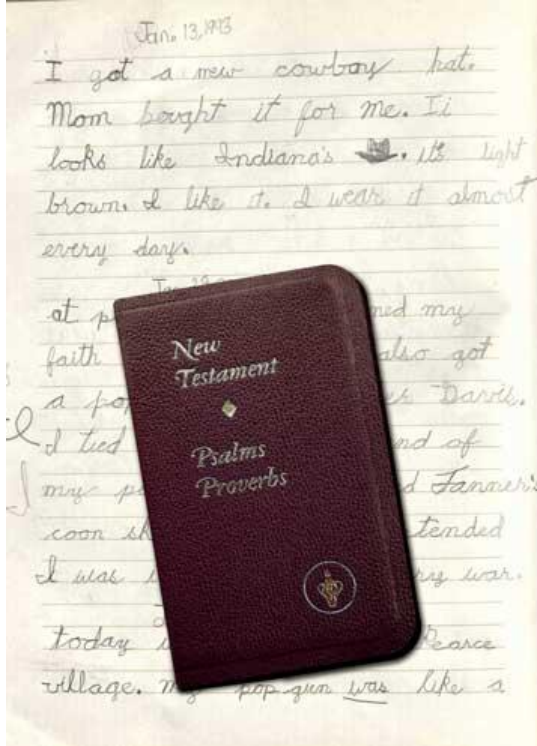 Jan. 13, 1993
I got a new cowboy hat.
Mom bought it for me. Ii
looks like Indiana's . it's light
brown. I like it. I wear it almost
every day.
at p ned my
faith also got
a pop Davis.
I tied nd of
my p d Tanner's
coon sk tended
I was ry war.
today Pearce
village. my pop gun was like a
New
Testament
Psalms
Proverbs